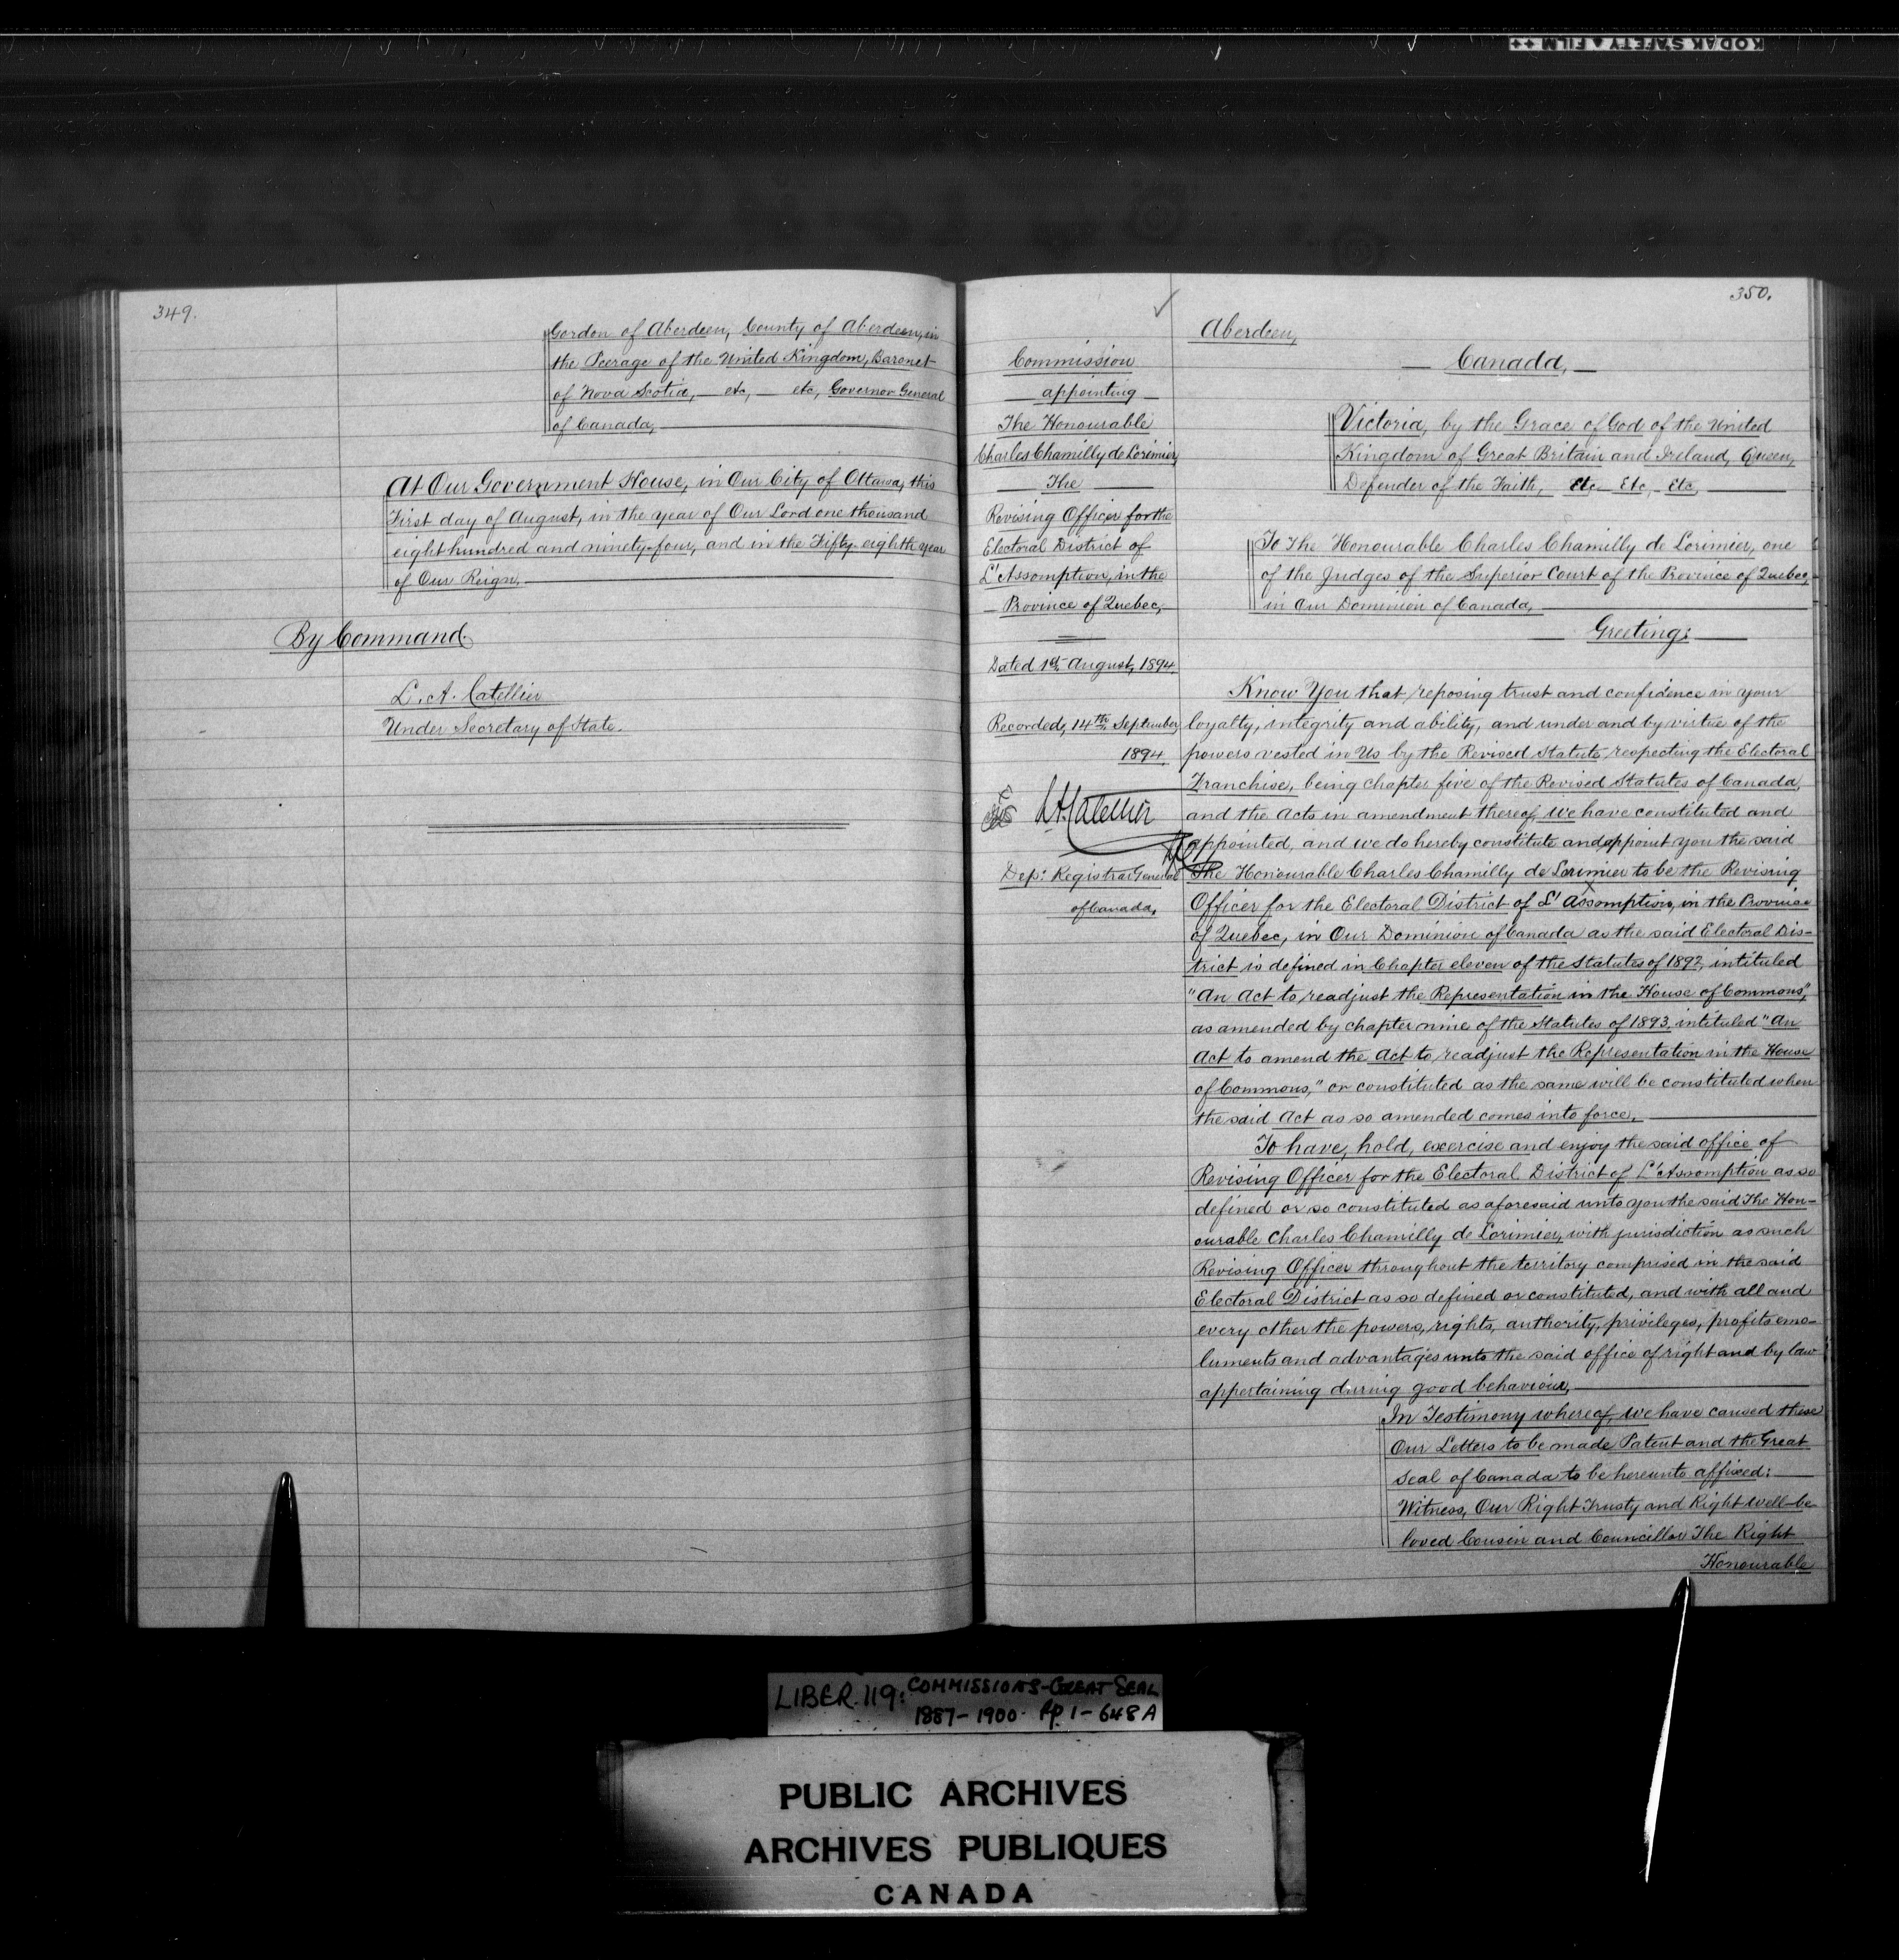 KODAK SAFETY FILM
349.
Gordon of Aberdeen, County of Aberdeen, in
the Peerage of the United Kingdom, Baronet
of Nova Scotia, — etc, — etc, Governor General
of Canada,
At Our Government House, in Our City of Ottawa, this
First day of August, in the year of Our Lord one thousand
eight hundred and ninety-four, and in the Fifty-eighth year
of Our Reign.
By Command.
L. A. Catellier
Under Secretary of State.
350.
Commission
appointing
The Honourable
Charles Chamilly de Lorimier,
The
Revising Officer for the
Electoral District of
L'Assomption, in the
Province of Quebec,
Dated 1st August, 1894.
Recorded, 14th September,
1894.
L.A. Catellier
Dep: Registrar General
of Canada.
Aberdeen,
— Canada, —
Victoria, by the Grace of God of the United
Kingdom of Great Britain and Ireland, Queen,
Defender of the Faith, Etc — Etc, — Etc,
To The Honourable Charles Chamilly de Lorimier, one
of the Judges of the Superior Court of the Province of Quebec,
in Our Dominion of Canada,
Greeting:
Know You that reposing trust and confidence in your
loyalty, integrity and ability, and under and by virtue of the
powers vested in Us by the Revised Statute respecting the Electoral
Franchise, being chapter five of the Revised Statutes of Canada,
and the Acts in amendment thereof, We have constituted and
appointed, and we do hereby constitute and appoint you the said
The Honourable Charles Chamilly de Lorimier to be the Revising
Officer for the Electoral District of L'Assomption, in the Province
of Quebec, in Our Dominion of Canada as the said Electoral Dis-
trict is defined in Chapter eleven of the Statutes of 1892, intituled
"An Act to readjust the Representation in the House of Commons",
as amended by chapter nine of the Statutes of 1893, intituled "An
Act to amend the Act to readjust the Representation in the House
of Commons," or constituted as the same will be constituted when
the said Act as so amended comes into force.
To have, hold, exercise and enjoy the said office of
Revising Officer for the Electoral District of L'Assomption as so
defined or so constituted as aforesaid unto you the said The Hon-
ourable Charles Chamilly de Lorimier, with jurisdiction as such
Revising Officer throughout the territory comprised in the said
Electoral District as so defined or constituted, and with all and
every other the powers, rights, authority, privileges, profits emo-
luments and advantages unto the said office of right and by law
appertaining during good behaviour,
In Testimony whereof, We have caused these
Our Letters to be made Patent and the Great
Seal of Canada to be hereunto affixed:
Witness, Our Right Trusty and Right Well-be
loved Cousin and Councillor The Right
Honourable
LIBER. 119: COMMISSIONS - GREAT SEAL
1887 - 1900. Pp. 1 - 648 A
PUBLIC ARCHIVES
ARCHIVES PUBLIQUES
CANADA